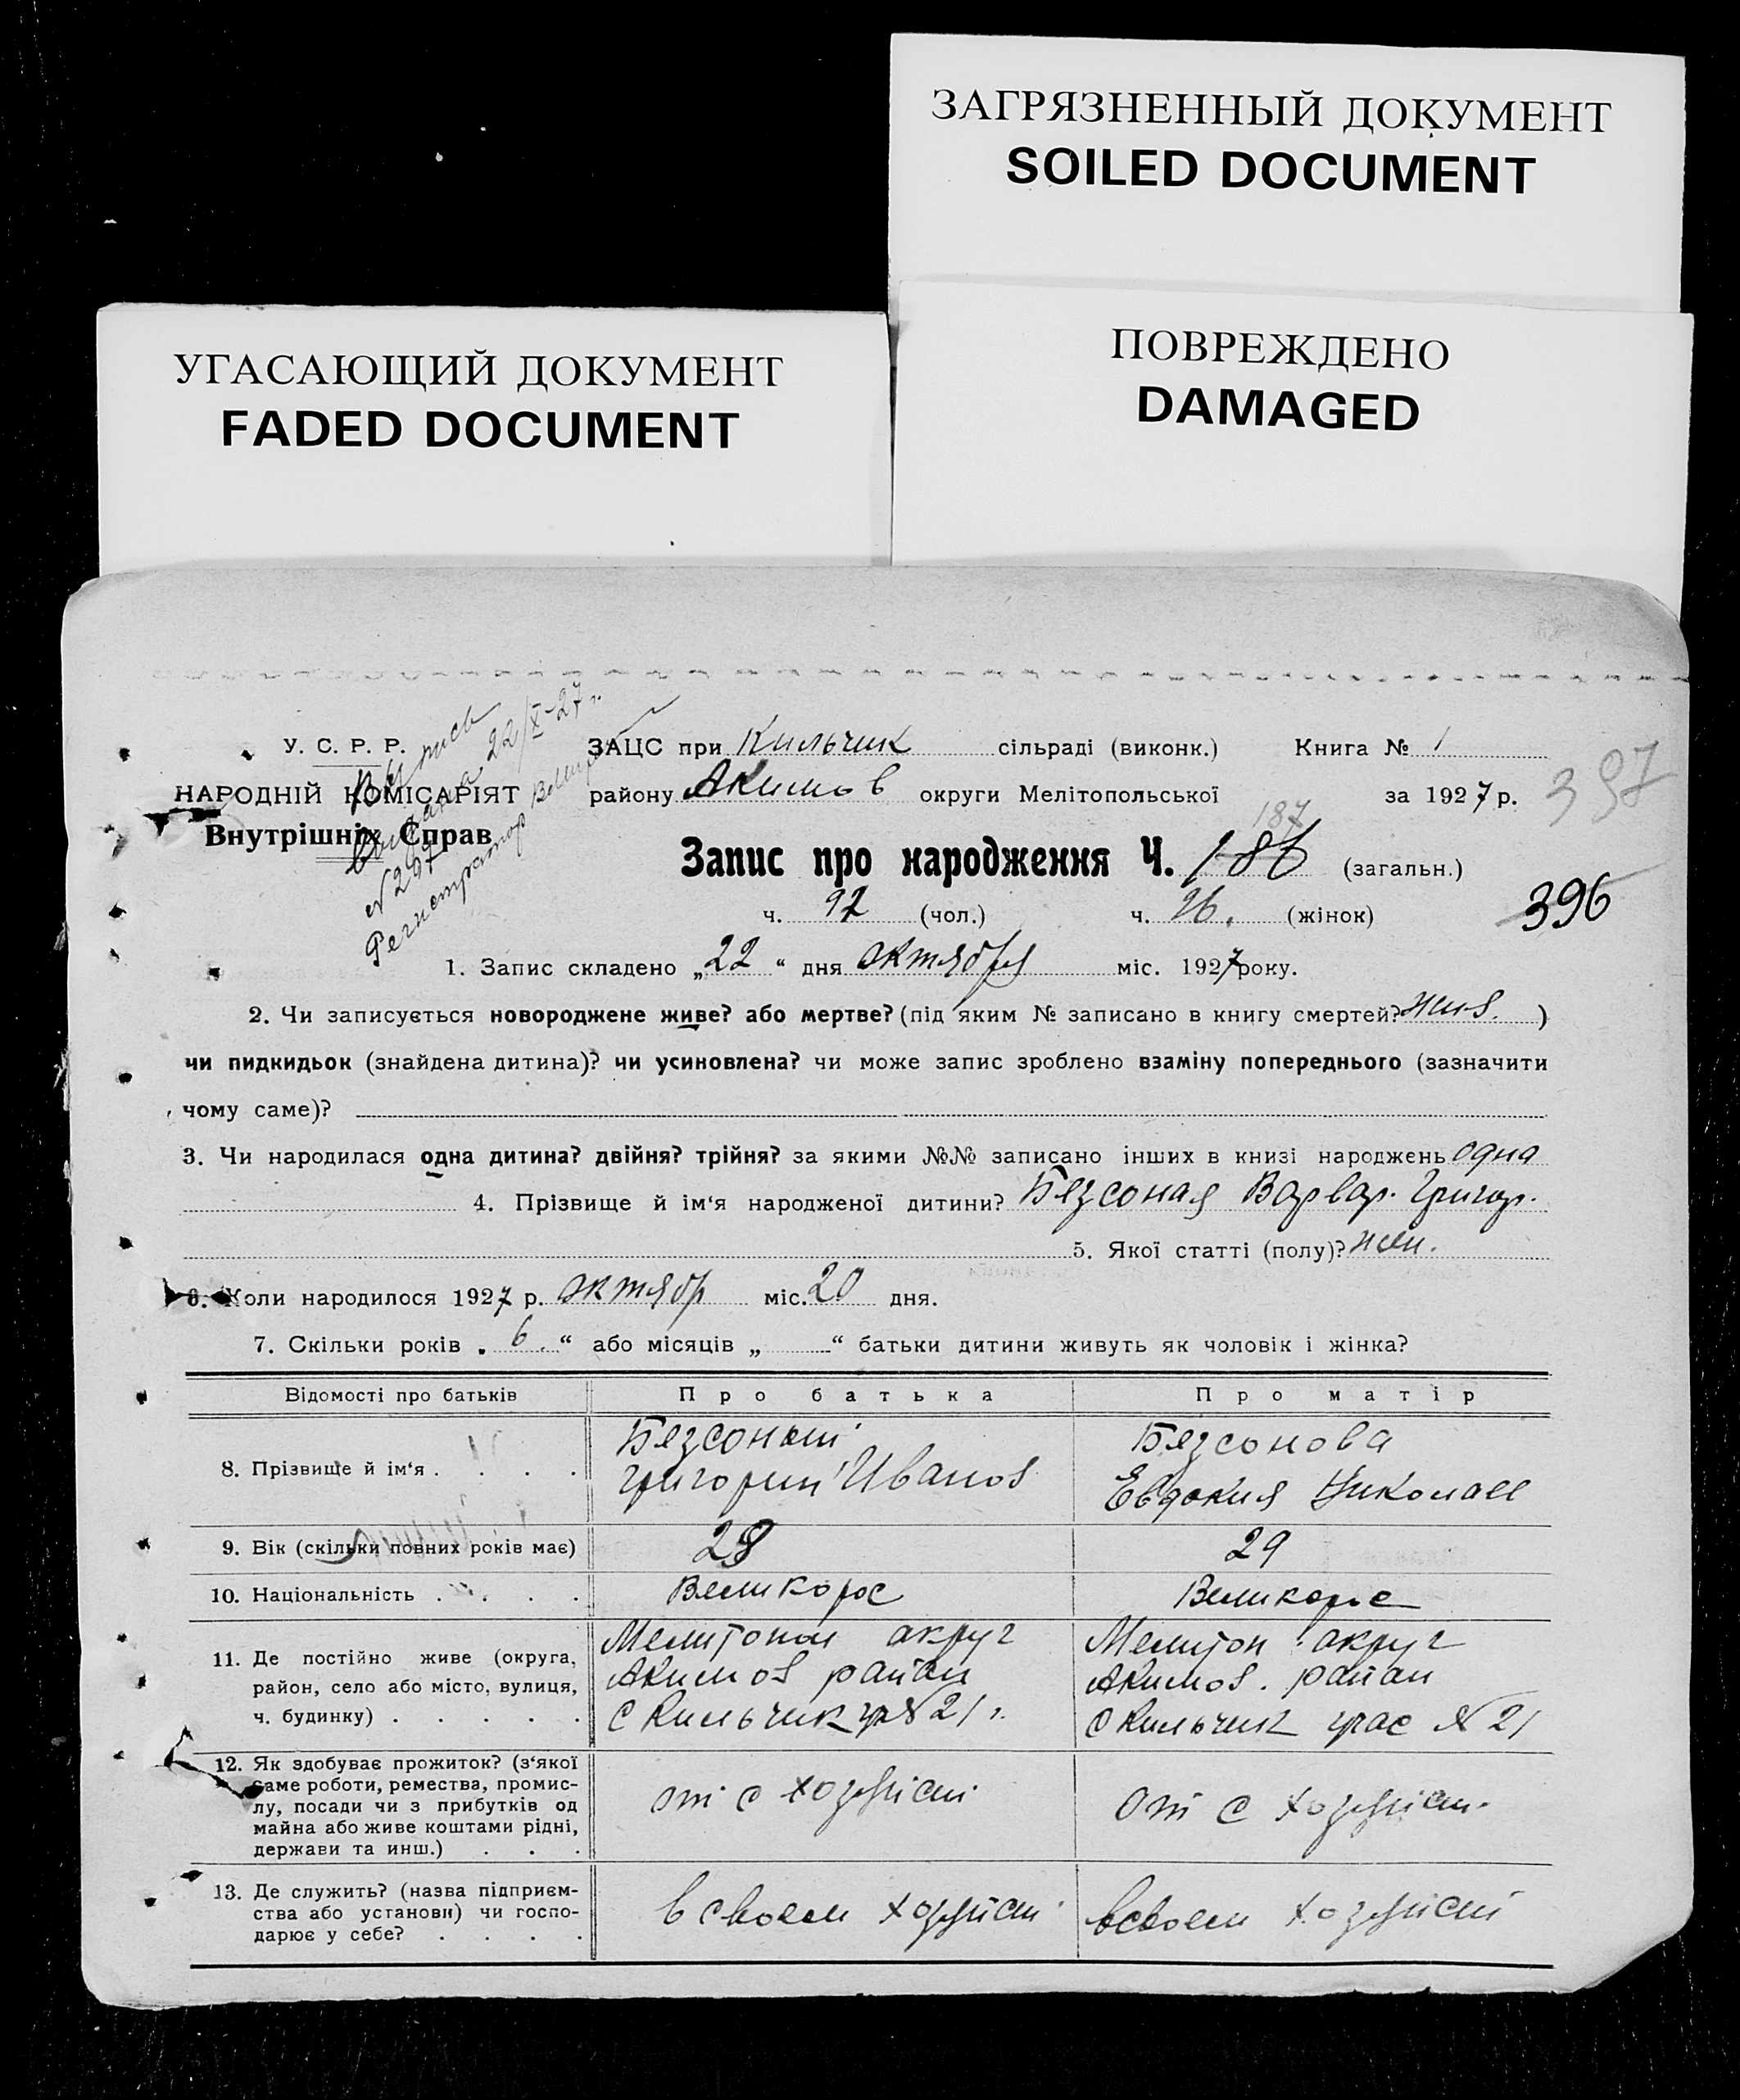 ЗАГРЯЗНЕННЫЙ ДОКУМЕНТ
SOILED DOCUMENT
УГАСАЮЩИЙ ДОКУМЕНТ
FADED DOCUMENT
ПОВРЕЖДЕНО
DAMAGED
У. С. Р. Р.
НАРОДНІЙ КОМІСАРІЯТ
Внутрішніх Справ
22/X-27 г.
N 297
Регистратор
ЗАЦС при Кильчик сільраді (виконк.) Книга № 1
району Акимов округи Мелітопольської за 1927 р.
397
187
Запис про народження Ч. 186 (загальн.)
396
ч. 92 (чол.) ч. 96. (жінок)
1. Запис складено „22“ дня октября міс. 1927 року.
2. Чи записується новороджене живе? або мертве? (під яким № записано в книгу смертей? жив. )
чи пидкидьок (знайдена дитина)? чи усиновлена? чи може запис зроблено взаміну попереднього (зазначити
чому саме)?
3. Чи народилася одна дитина? двійня? трійня? за якими №№ записано інших в книзі народжень одна
4. Прізвище й ім'я народженої дитини? Безсоная Варвар. Григор.
5. Якої статті (полу)? жен.
6. Коли народилося 1927 р. октябр міс. 20 дня.
7. Скільки років „ 6 “ або місяців „ “ батьки дитини живуть як чоловік і жінка?
Відомості про батьків Про батька Про матір
8. Прізвище й ім'я . . . . Безсоный Григорий Иванов Безсонова Евдокия Николаев
9. Вік (скільки повних років має) 28 29
10. Національність . . . . Великорос Великорос
11. Де постійно живе (округа, Мелитопол округ Мелитоп округ
район, село або місто, вулиця, Акимов район Акимов. район
ч. будинку) . . . . . с Кильчик N 21 с Кильчик N 21
12. Як здобуває прожиток? (з'якої
саме роботи, ремества, промис-
лу, посади чи з прибутків од от с хозяйств от с хозяйств
майна або живе коштами рідні,
держави та инш.) . . .
13. Де служить? (назва підприєм-
ства або установи) чи госпо- в своем хозяйст в своем хозяйст
дарює у себе? . . . .